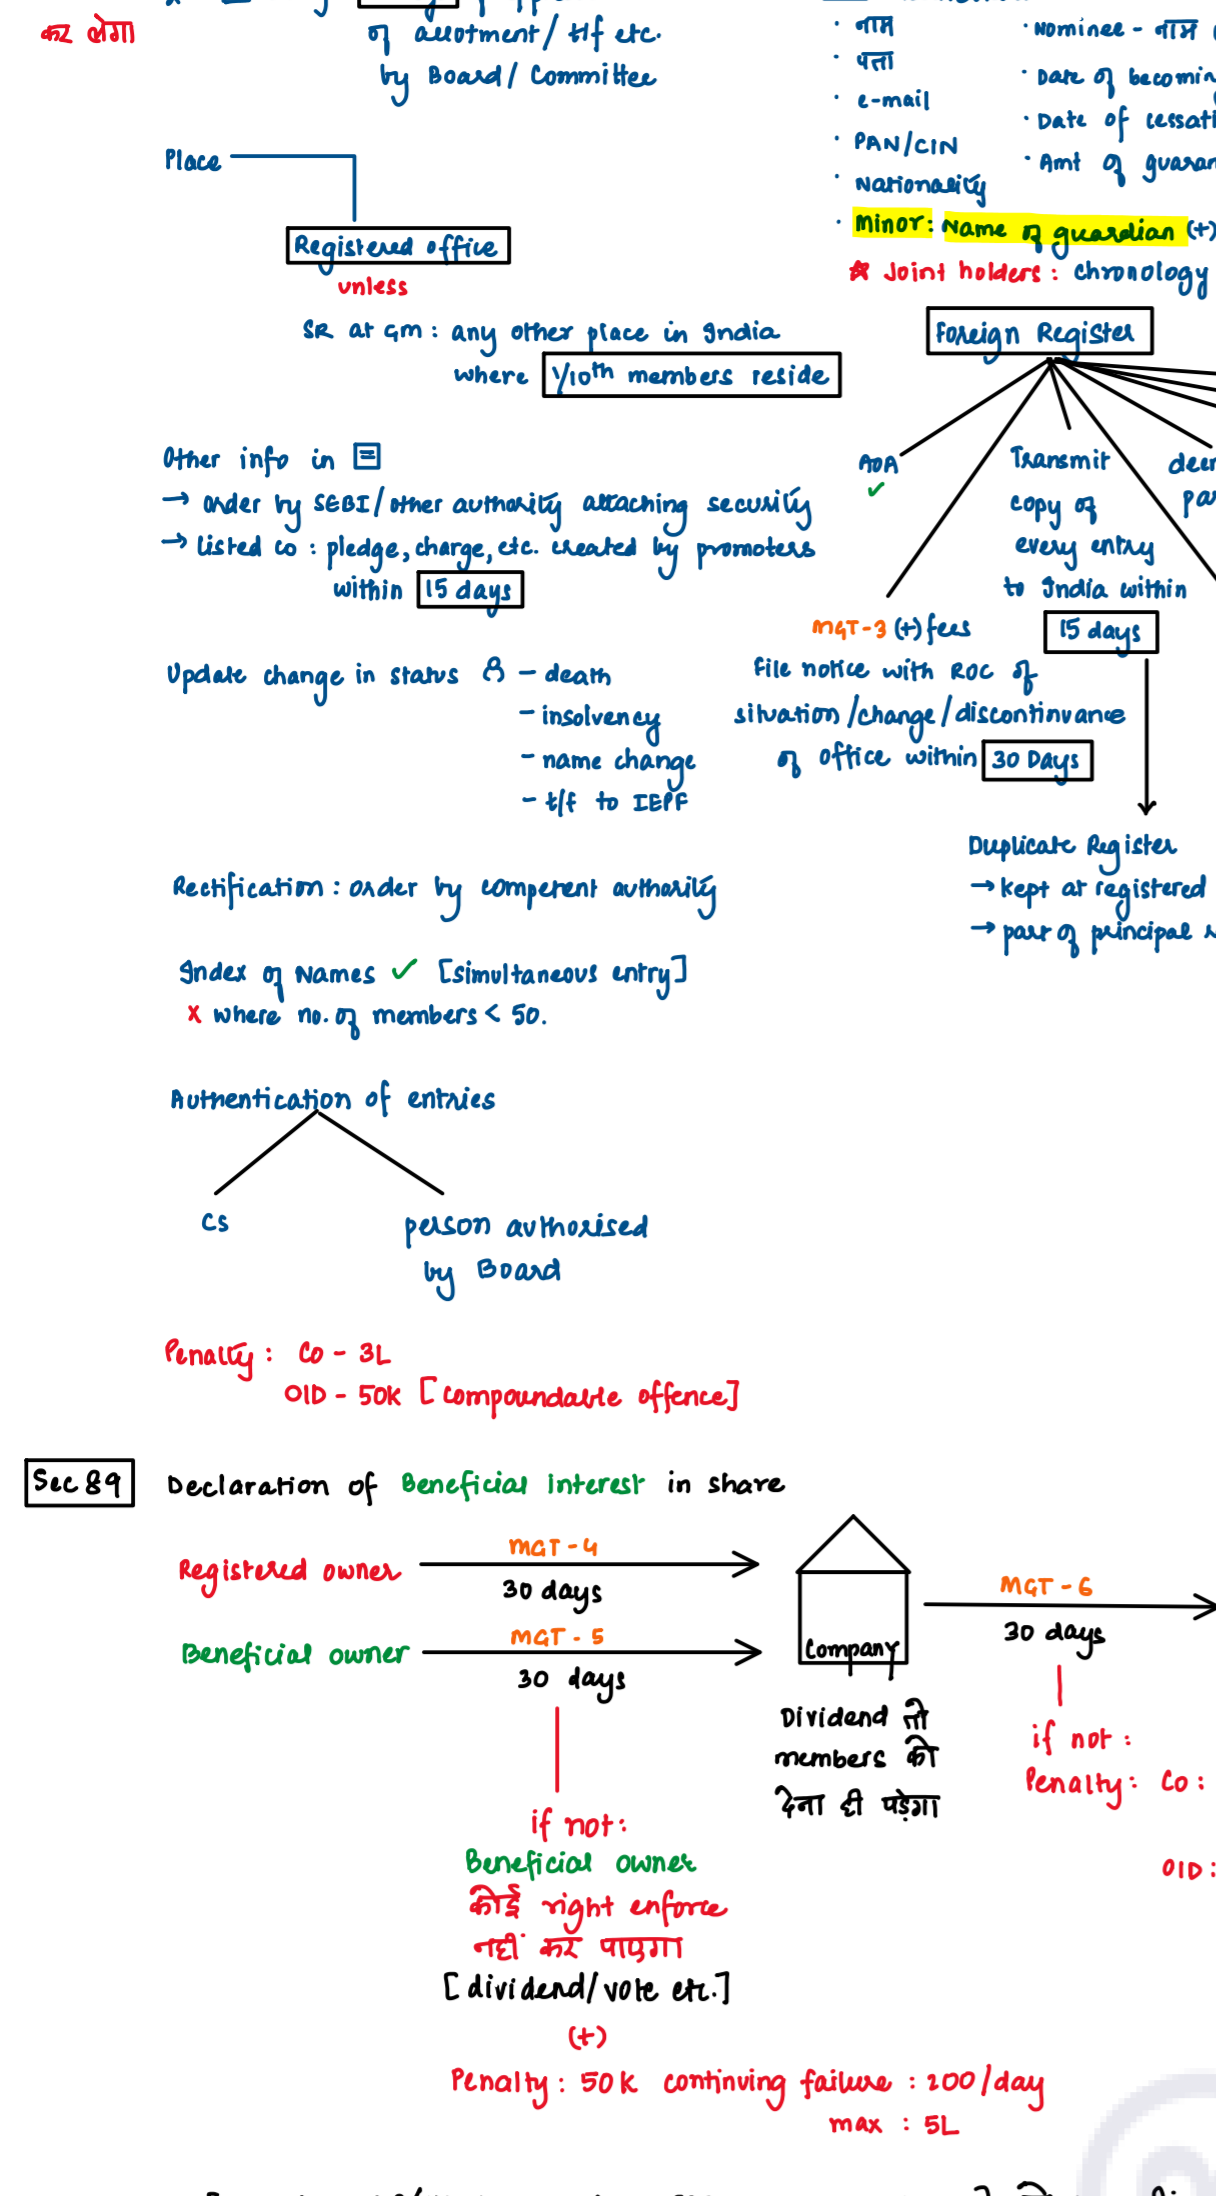 कर लेगा
of allotment/ t/f etc.
by Board/ Committee
Place
Registered office
unless
SR at GM : any other place in India
where 1/10th members reside
Other info in
→ order by SEBI/other authority attaching security
→ Listed co : pledge, charge, etc. created by promoters
within 15 days
Update change in status - death
- insolvency
- name change
- t/f to IEPF
Rectification : order by competent authority
Index of Names ✓ [simultaneous entry]
x where no. of members < 50.
Authentication of entries
CS
person authorised
by Board
Penalty : Co - 3L
OID - 50K [compoundable offence]
· नाम
· पत्ता
· e-mail
· PAN/CIN
· Nationality
· Minor: Name of guardian (+)
· Nominee - नाम
· Date of
· Date of
· Amt of
* Joint holders : chronology
Foreign Register
AOA
✓
MGT-3 (+) fees
File notice with ROC of
situation /change/discontinuance
of office within 30 Days
Transmit
copy of
every entry
to India within
15 days
Duplicate Register
→ kept at registered
→ part of principal
Sec 89 Declaration of Beneficial Interest in share
Registered owner MGT-4
30 days
Beneficial owner MGT-5
30 days
Company
MGT-6
30 days
Dividend तो
members को
देना ही पड़ेगा
if not :
Penalty : Co :
OID :
if not :
Beneficial owner
कोई right enforce
नहीं कर पाएगा
[dividend/vote etc.]
(+)
Penalty : 50K continuing failure : 200/day
max : 5L